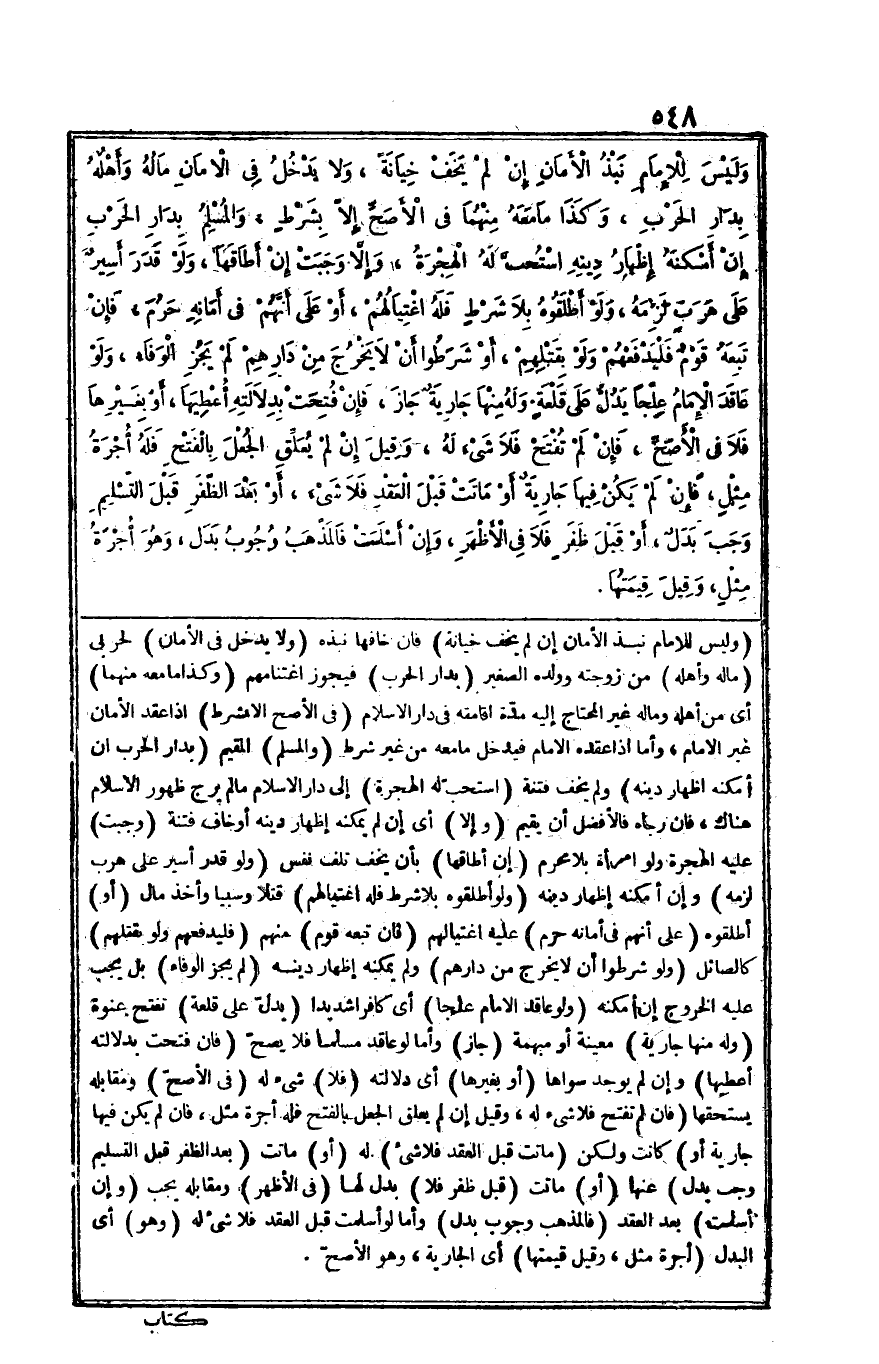 ٥٤٨
وَلَيْسَ لِلْإِمَامِ نَبْذُ الْأَمَانِ إِنْ لَمْ يَخَفْ خِيَانَةً ، وَلَا يَدْخُلُ فِى الْأَمَانِ مَالُهُ وَأَهْلُهُ
بِدَارِ الحَرْبِ ، وَكَذَا مَامَعَهُ مِنْهُمَا فى الْأَصَحِّ إِلاَّ بِشَرْطٍ ، وَالْمُسْلِمُ بِدَارِ الحَرْبِ
إِنْ أَمْكَنَهُ إِظْهَارُ دِينِهِ اسْتُحِبَّ لَهُ الْهِجْرَةُ ، وَإِلَّا وَجَبَتْ إِنْ أَطَاقَهَا ، وَلَوْ قَدَرَ أَسِيرٌ
عَلَى هَرَبٍ لَزِمَهُ ، وَلَوْ أَطْلَقُوهُ بِلَا شَرْطٍ فَلَهُ اغْتِيَالُهُمْ ، أَوْ عَلَى أَنَّهُمْ فى أَمَانِهِ حَرُمَ ، فَإِنْ
تَبِعَهُ قَوْمٌ فَلْيَدْفَعْهُمْ وَلَوْ بِقَتْلِهِمْ ، أَوْ شَرَطُوا أَنْ لاَيَخْرُجَ مِنْ دَارِهِمْ لَمْ يَجُزِ الْوَفَاء ، وَلَوْ
عَاقَدَ الْإِمَامُ عِلْجًا يَدُلُّ عَلَى قَلْعَةٍ وَلَهُ مِنْهَا جَارِيَةٌ جَازَ ، فَإِنْ فُتِحَتْ بِدِلَالَتِهِ أُعْطِيَهَا ، أَوْ بِغَيْرِهَا
فَلَا فى الْأَصَحِّ ، فَإِنْ لَمْ تُفْتَحْ فَلَا شَىْءَ لَهُ ، وَقِيلَ إِنْ لَمْ يُعَلِّقِ الْجُعْلَ بِالْفَتْحِ فَلَهُ أُجْرَةُ
مِثْلٍ ، فَإِنْ لَمْ يَكُنْ فِيهَا جَارِيَةٌ أَوْ مَاتَتْ قَبْلَ الْعَقْدِ فَلَا شَىْءَ ، أَوْ بَعْدَ الظَّفَرِ قَبْلَ التَّسْلِيمِ
وَجَبَ بَدَلٌ ، أَوْ قَبْلَ ظَفَرٍ فَلَا فِى الْأَظْهَرِ ، وَإِنْ أَسْلَمَتْ فَالمَذْهَبُ وُجُوبُ بَدَلٍ ، وَهُوَ أُجْرَةُ
مِثْلٍ ، وَقِيلَ قِيمَتُهَا .
(وليس للامام نبـذ الأمان إن لم يخف خيانة) فان خافها نبذه (ولا يدخل فى الأمان) لحربى
(ماله وأهله) من زوجته وولده الصغير (بدار الحرب) فيجوز اغتنامهم (وكذامامعه منهما)
أى من أهله وماله غير المحتاج إليه مدّة اقامته فى دارالاسلام (فى الأصح الابشرط) اذاعقد الأمان
غير الامام ، وأما اذاعقده الامام فيدخل مامعه من غير شرط (والمسلم) المقيم (بدار الحرب ان
أمكنه اظهار دينه) ولم يخف فتنة (استحب له الهجرة) إلى دارالاسلام مالم يرج ظهور الاسلام
هناك ، فان رجاه فالأفضل أن يقيم (وإلا) أى إن لم يمكنه إظهار دينه أوخاف فتنة (وجبت)
عليه الهجرة ولو امرأة بلامحرم (إن أطاقها) بأن يخف تلف نفس (ولو قدر أسير على هرب
لزمه) وإن أمكنه إظهار دينه (ولوأطلقوه بلاشرط فله اغتيالهم) قتلا وسبيا وأخذ مال (أو)
أطلقوه (على أنهم فى أمانه حرم) عليه اغتيالهم (فان تبعه قوم) منهم (فليدفعهم ولو بقتلهم)
كالصائل (ولو شرطوا أن لايخرج من دارهم) ولم يمكنه إظهار دينـه (لم يجز الوفاء) بل يجب
عليه الخروج إن أمكنه (ولوعاقد الامام علجا) أى كافراشديدا (يدلّ على قلعة) تفتح عنوة
(وله منها جارية) معينة أو مبهمة (جاز) وأما لوعاقد مسلما فلا يصحّ (فان فتحت بدلالته
أعطيها) وإن لم يوجد سواها (أو بغيرها) أى دلالته (فلا) شىء له (فى الأصحّ) ومقابله
يستحقها (فان لم تفتح فلاشىء له ، وقيل إن لم يعلق الجعل بالفتح فله أجرة مثل ، فان لم يكن فيها
جارية أو) كانت ولكن (ماتت قبل العقد فلاشىء) له (أو) ماتت (بعدالظفر قبل التسليم
وجب بدل) عنها (أو) ماتت (قبل ظفر فلا) بدل لها (فى الأظهر) ومقابله يجب (وإن
أسلمت) بعد العقد (فالمذهب وجوب بدل) وأما لوأسلمت قبل العقد فلا شىء له (وهو) أى
البدل (أجرة مثل ، وقيل قيمتها) أى الجارية ، وهو الأصحّ .
كتاب